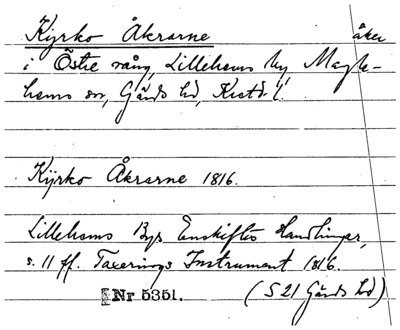 Kyrko Åkrarne åker
i Östre vång, Lillehems by, Magle-
hems sn, Gärds hd, Kristi. l.
Kyrko Åkrarne 1816.
Lillehems Bys Enskiftes Handlingar,
s. 11 ff. Taxerings Instrument 1816.
Nr 5351. (S 21 Gärds hd)